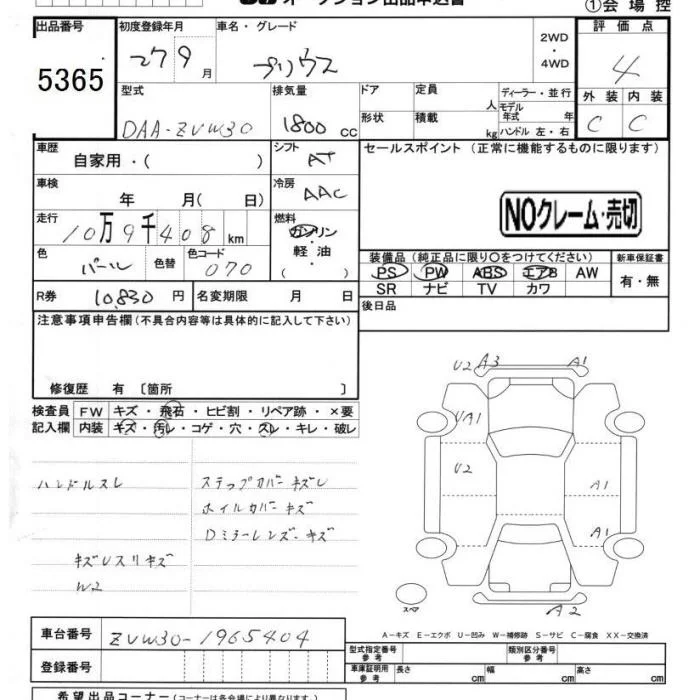 オークション出品申込書
①会場控
出品番号 初度登録年月 車名・グレード 2WD・4WD 評価点
5365 27 9月 プリウス 4
型式 排気量 ドア 定員 人 ディーラー・並行 外装 内装
DAA-ZVW30 1800 cc 形状 積載 kg モデル年式 年 C C
ハンドル 左・右
車歴 自家用・( ) シフト AT セールスポイント(正常に機能するものに限ります)
車検 年 月( 日) 冷房 AAC
NOクレーム・売切
走行 10万9千408km 燃料 ガソリン
軽油
( )
色 パール 色替 色コード 070
装備品(純正品に限り〇をつけてください) 新車保証書
PS PW ABS エアB AW 有・無
SR ナビ TV カワ
R券 10,830円 名変期限 月 日 後日品
注意事項申告欄(不具合内容等は具体的に記入して下さい)
修復歴 有 [箇所 ]
検査員 FW キズ・飛石・ヒビ割・リペア跡・×要
記入欄 内装 キズ・汚レ・コゲ・穴・スレ・キレ・破レ
U2 A3 A1
UA1
U2
A1
A1
A2
スペア
ハンドルスレ ステップカバーキズレ
ホイルカバーキズ
Dミラーレンズキズ
キズUスリキズ
W2
A-キズ E-エクボ U-凹み W-補修跡 S-サビ C-腐食 XX-交換済
車台番号 ZVW30-1965404
型式指定番号 参考 類別区分番号 参考
登録番号
車庫証明用 参考 長さ cm 幅 cm 高さ cm
希望出品コーナー(コーナーは各会場により異なります。)